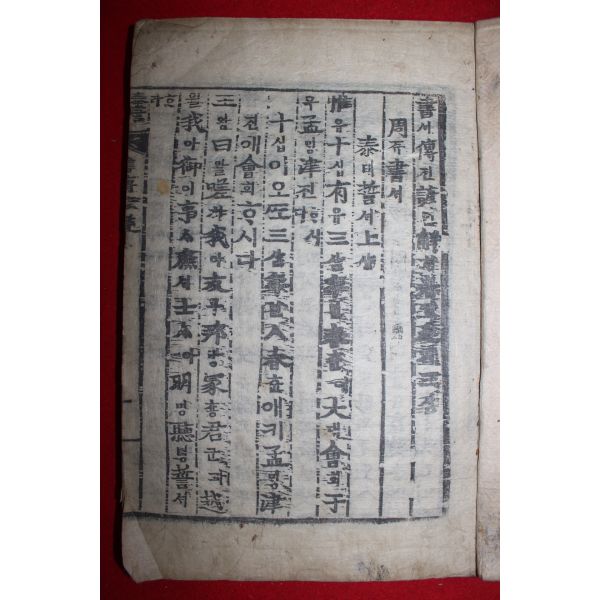 書셔傳젼諺언解
周쥬書셔
泰태誓셔上샹
惟유十십有유三삼年년春츈에大대會회于
우孟ᄆᆡᆼ津진
十십이오ᄯᅩ三삼年년春츈애키孟ᄆᆡᆼ津
진애會회ᄒᆞ시다
王왕曰왈嗟차我아友우邦방冢춍君군과越
월我아御어事ᄉᆞ庶셔士ᄉᆞ아明명聽텽誓셔
ᄒᆞ라